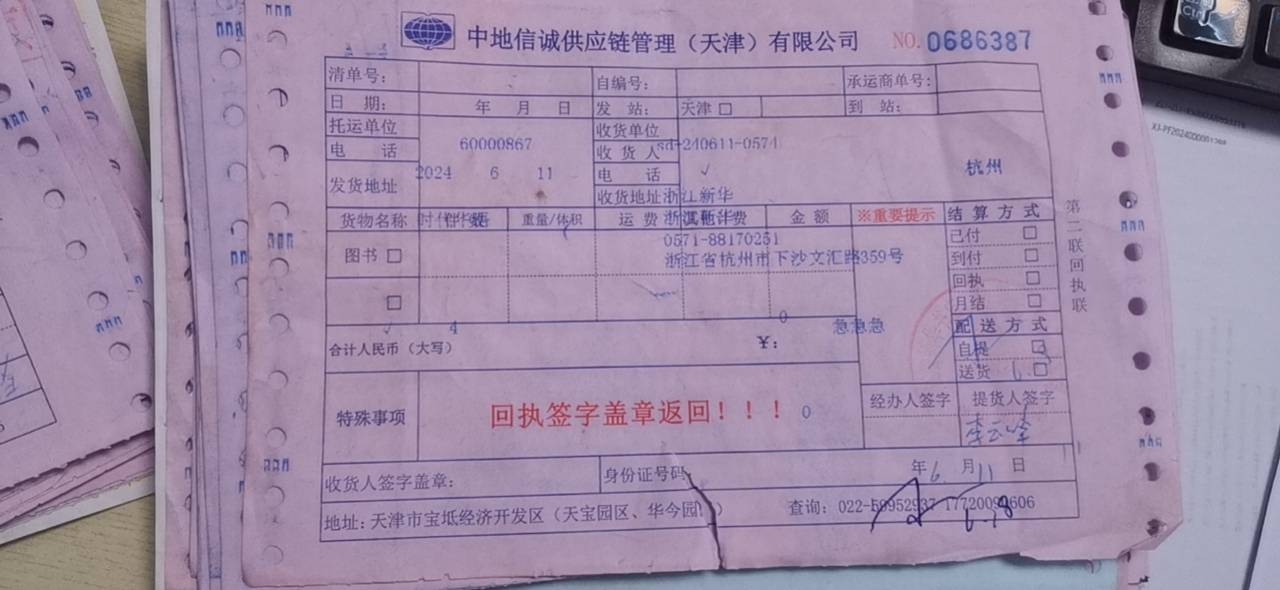 中地信诚供应链管理（天津）有限公司 NO.0686387
清单号： 自编号： 承运商单号：
日 期： 年 月 日 发 站： 天津□ 到 站：
托运单位 收货单位
电 话 60000867 收 货 人 sd-240611-0574
杭州
发货地址 2024 6 11 电 话 √
收货地址 浙江新华
货物名称 件 数 重量/体积 运 费 其他杂费 金 额 ※重要提示 结 算 方 式
时代华语
浙江新华
图书 □ 0571-88170251 已付 □
浙江省杭州市下沙文汇路359号 到付 □
□ 回执 □
月结 □
√ 4 0 急急急 配 送 方 式
合计人民币（大写） ¥： 自提 □
送货 □
特殊事项 回执签字盖章返回！！！ 0 经办人签字 提货人签字
李云峰
收货人签字盖章： 身份证号码 年 6 月 11 日
地址：天津市宝坻经济开发区（天宝园区、华今园 ） 查询：022-59952937
6.18
第二联回执联
XJ-PF202400001